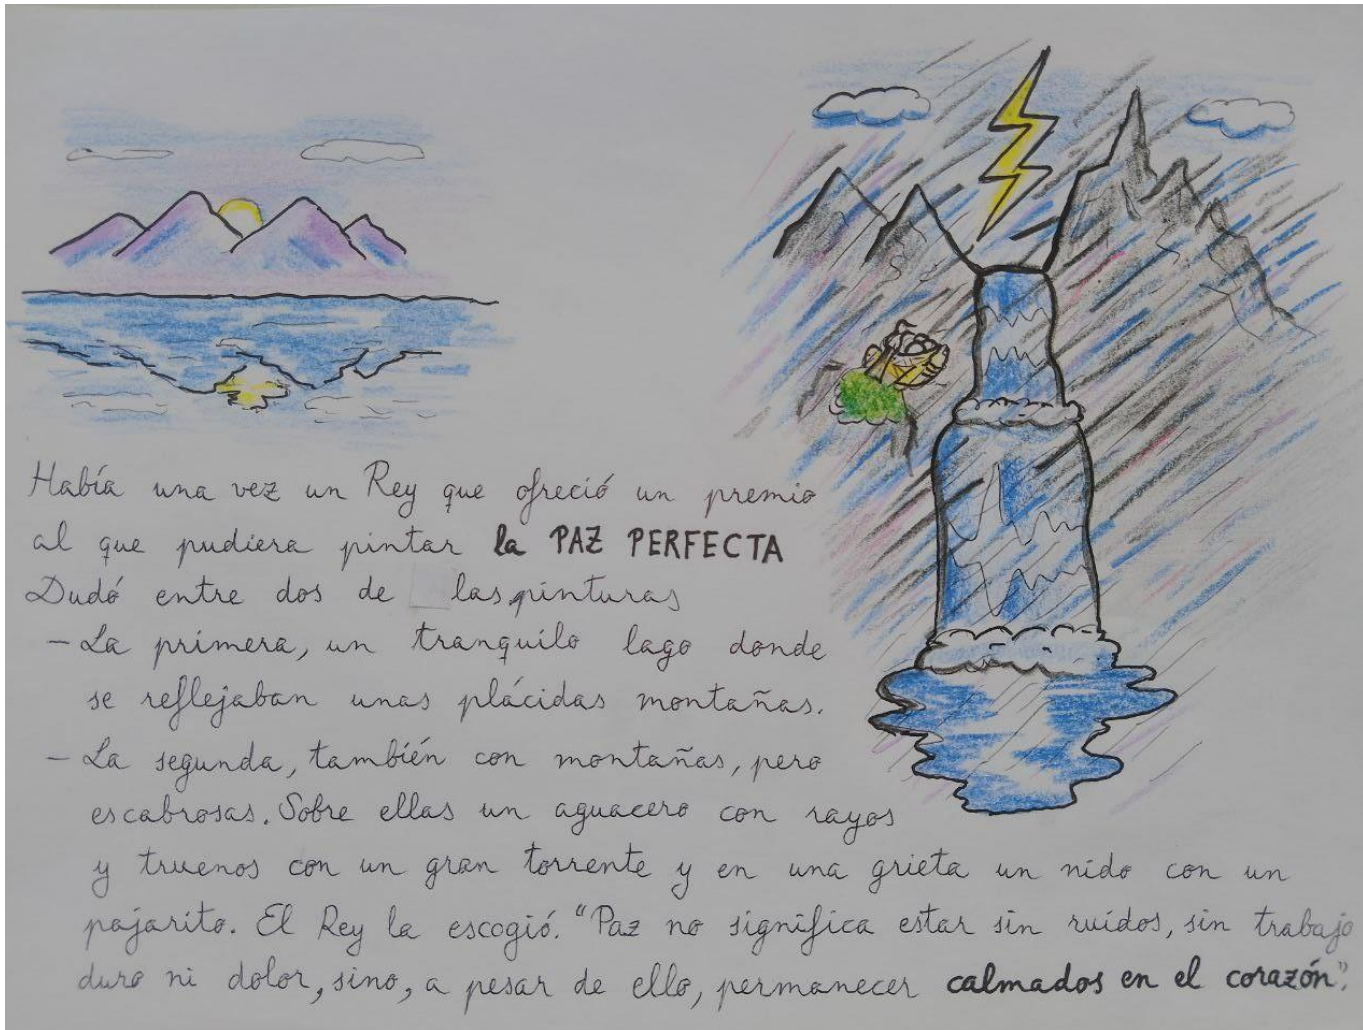 Había una vez un Rey que ofreció un premio
al que pudiera pintar la PAZ PERFECTA
Dudó entre dos de las pinturas
- La primera, un tranquilo lago donde
se reflejaban unas plácidas montañas.
- La segunda, también con montañas, pero
escabrosas. Sobre ellas un aguacero con rayos
y truenos con un gran torrente y en una grieta un nido con un
pajarito. El Rey la escogió. "Paz no significa estar sin ruidos, sin trabajo
duro ni dolor, sino, a pesar de ello, permanecer calmados en el corazón".